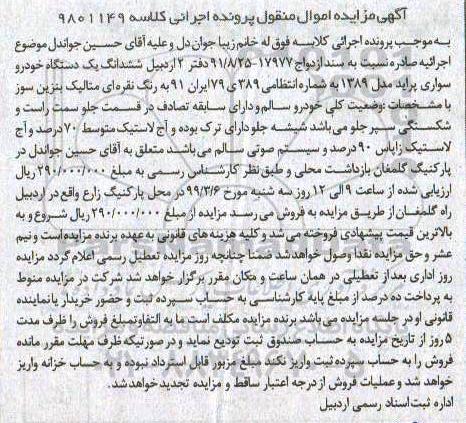 آگهی مزایده اموال منقول پرونده اجرائی کلاسه ۹۸۰۱۱۴۹
به موجب پرونده اجرائی کلاسه فوق له خانم زیبا جوان دل و علیه آقای حسین جواندل موضوع
اجرائیه صادره نسبت به سند ازدواج ۱۷۹۷۷-۹۱/۸/۲۵ دفتر ۲ اردبیل ششدانگ یک دستگاه خودرو
سواری پراید مدل ۱۳۸۹ به شماره انتظامی ۳۸۹ ی ۷۹ ایران ۹۱ به رنگ نقره ای متالیک بنزین سوز
با مشخصات : وضعیت کلی خودرو سالم و دارای سابقه تصادف در قسمت جلو سمت راست و
شکستگی سپر جلو می باشد شیشه جلو دارای ترک بوده و آج لاستیک متوسط ۷۰ درصد و آج
لاستیک زاپاس ۹۰ درصد و سیستم صوتی سالم می باشد متعلق به آقای حسین جواندل در
پارکینگ گلمغان بازداشت محلی و طبق نظر کارشناس رسمی به مبلغ ۲۹۰/۰۰۰/۰۰۰ ریال
ارزیابی شده از ساعت ۹ الی ۱۲ روز سه شنبه مورخ ۹۹/۳/۶ در محل پارکینگ زارع واقع در اردبیل
راه گلمغان از طریق مزایده به فروش می رسد مزایده از مبلغ ۲۹۰/۰۰۰/۰۰۰ ریال شروع و به
بالاترین قیمت پیشنهادی فروخته می شد و کلیه هزینه های قانونی به عهده برنده مزایده است و نیم
عشر و حق مزایده نقدا وصول خواهد شد ضمنا چنانچه روز مزایده تعطیل رسمی اعلام گردد مزایده
روز اداری بعد از تعطیلی در همان ساعت و مکان مقرر برگزار خواهد شد شرکت در مزایده منوط
به پرداخت ده درصد از مبلغ پایه کارشناسی به حساب سپرده ثبت و حضور خریدار یا نماینده
قانونی او در جلسه مزایده می باشد برنده مزایده مکلف است ما به التفاوت مبلغ فروش را ظرف مدت
۵ روز از تاریخ مزایده به حساب صندوق ثبت تودیع نماید و در صورتیکه ظرف مهلت مقرر مانده
فروش را به حساب سپرده ثبت واریز نکند مبلغ مزبور قابل استرداد نبوده و به حساب خزانه واریز
خواهد شد و عملیات فروش از درجه اعتبار ساقط و مزایده تجدید خواهد شد.
اداره ثبت اسناد رسمی اردبیل